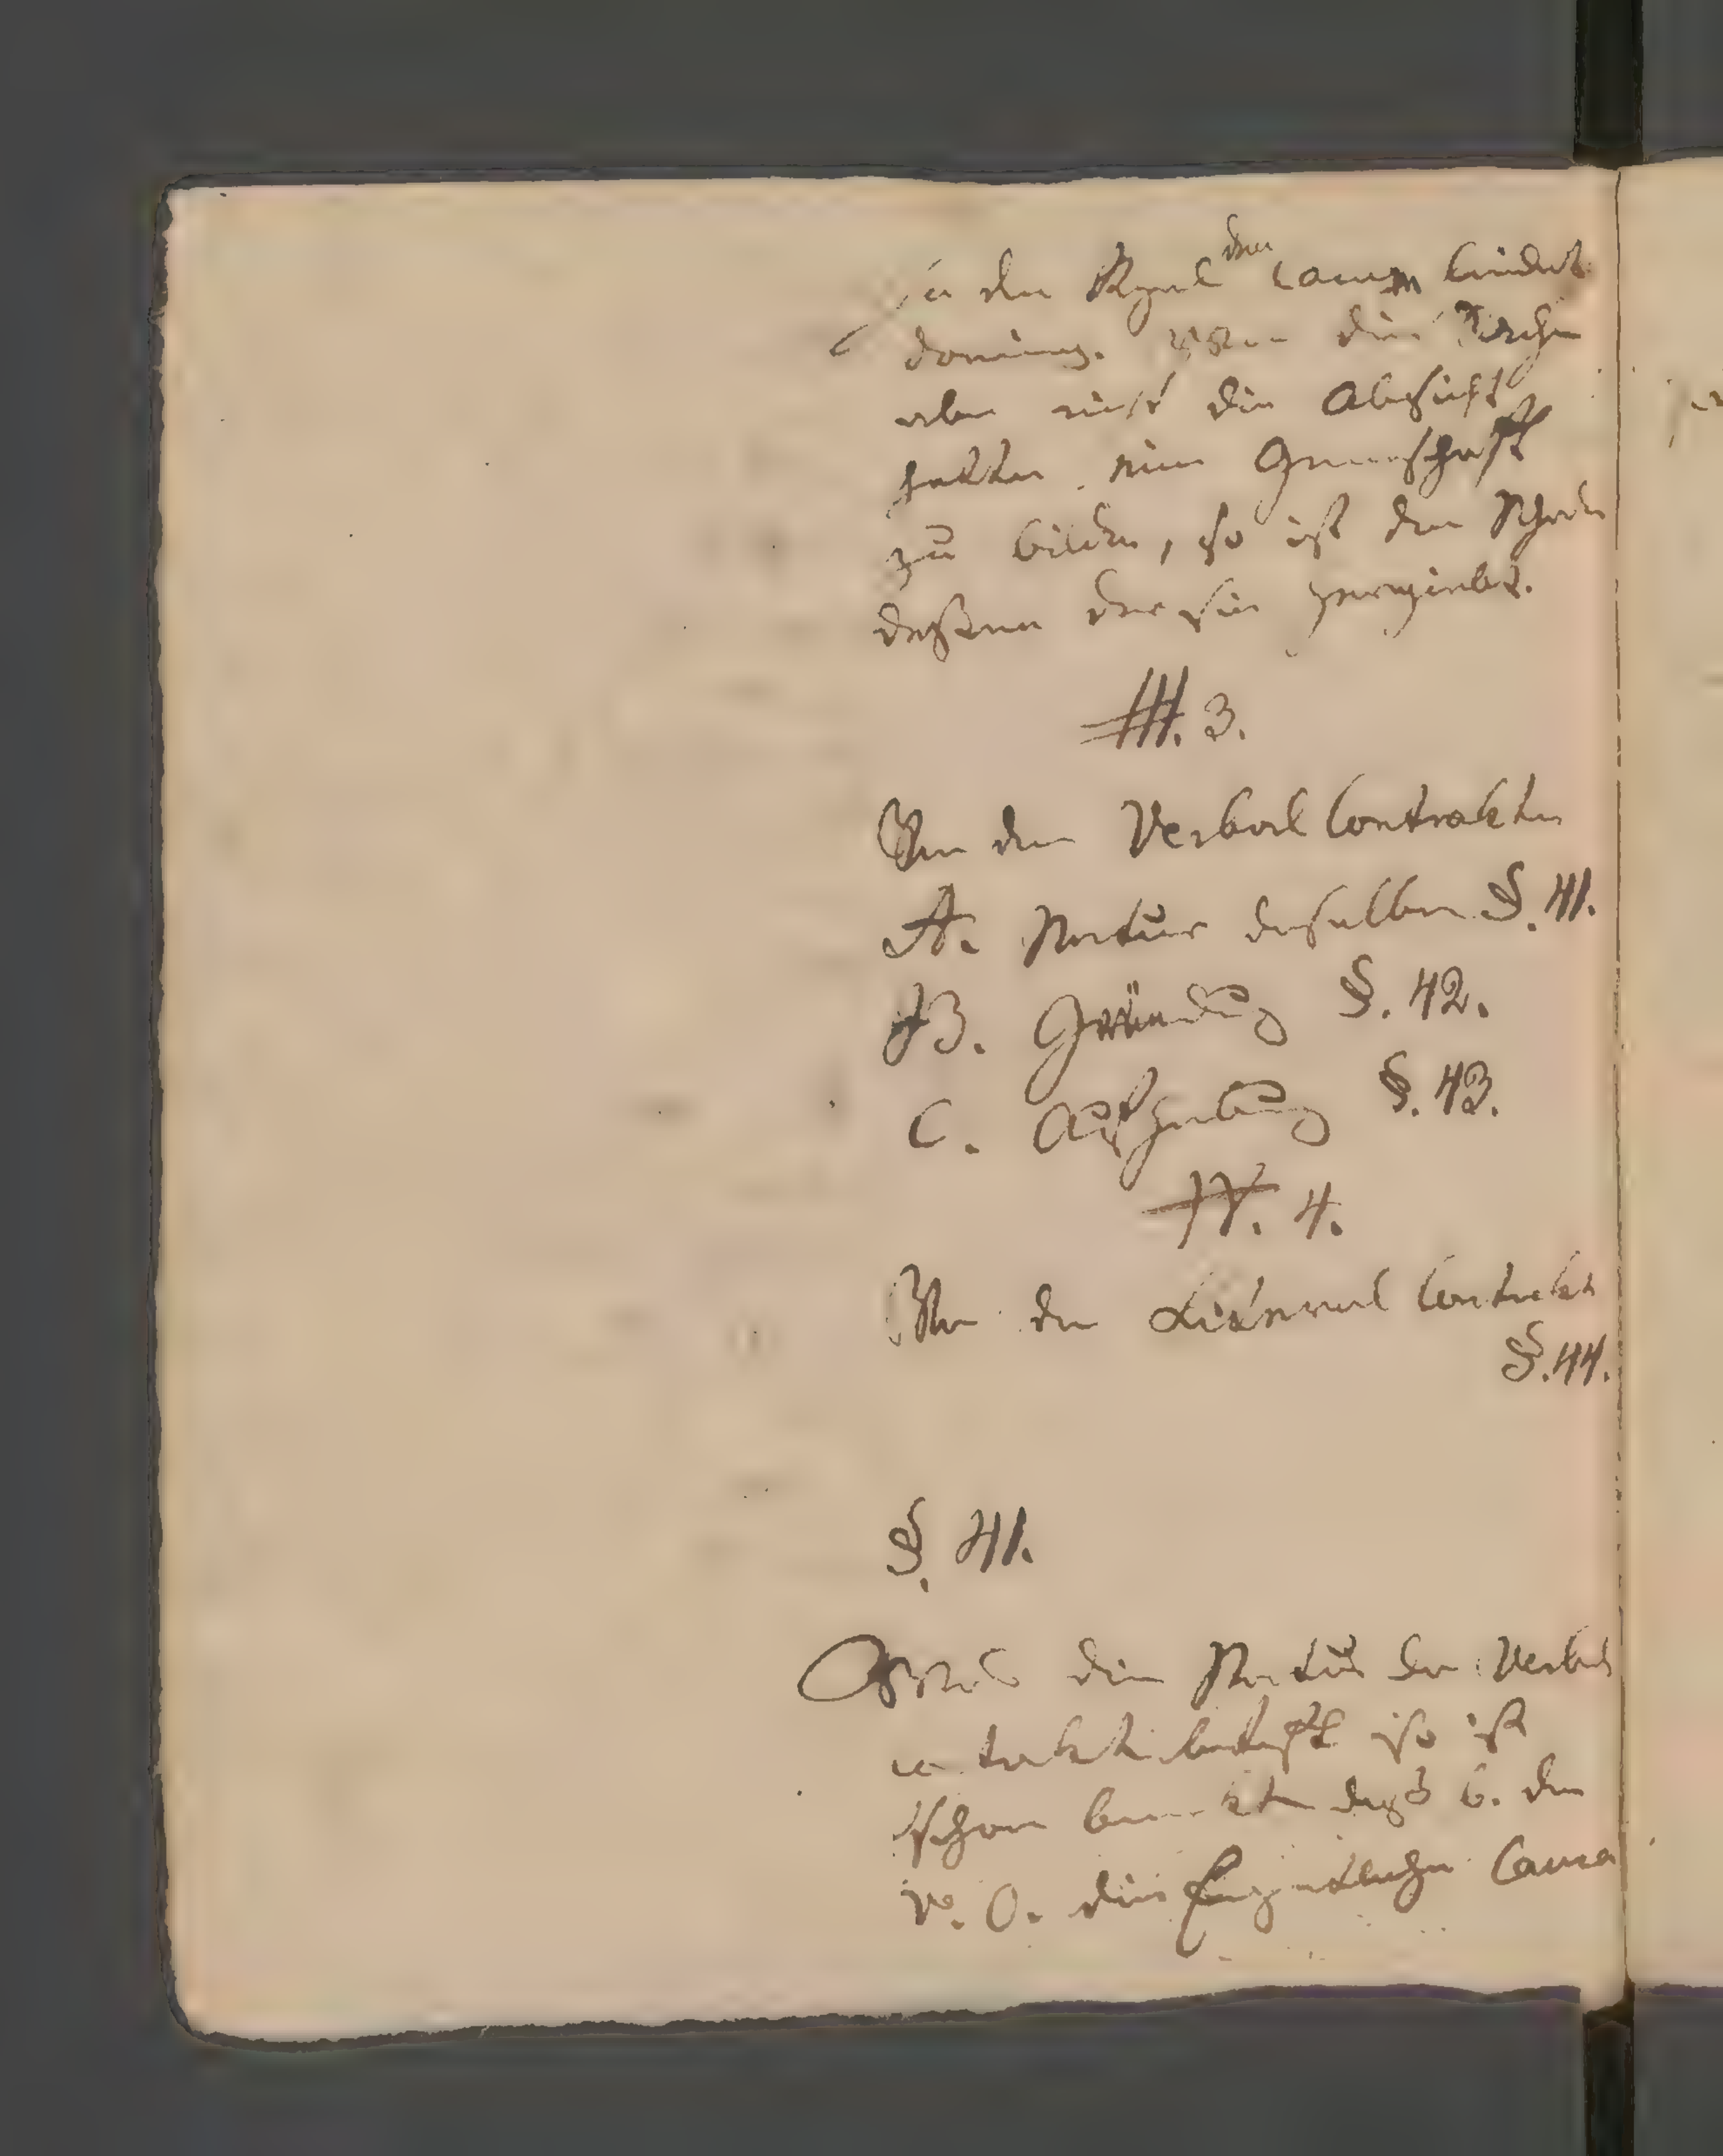 in der Regel den casum leidet
dominus. Wenn die Sache
aber nicht die Absicht
hatten eine Gemeinschaft
zu bilden, so ist der Schade
deßen der sie
III. 3.
Von den Verbal Contrakten
A. Natur deselben §. 41.
B. Gründung §. 42.
C. Aufhebung §. 43.
IV. 4.
Von den Literal Contrakt
§. 44.
§. 41.
Was die Natur der Verbal
contrakte betrifft so ist
schon daß b. den
V. O. die eigentliche Causa